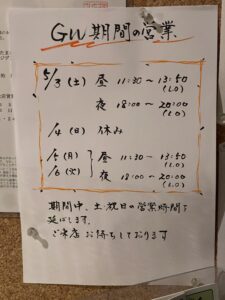 GW期間の営業
5/3(土) 昼 11:30～13:50
(L.O)
夜 18:00～20:00
(L.O)
/4(日) 休み
/5(月) 昼 11:30～13:50
(L.O)
/6(火) 夜 18:00～20:00
(L.O)
期間中、土祝日の営業時間で
延ばします。
ご来店お待ちしております